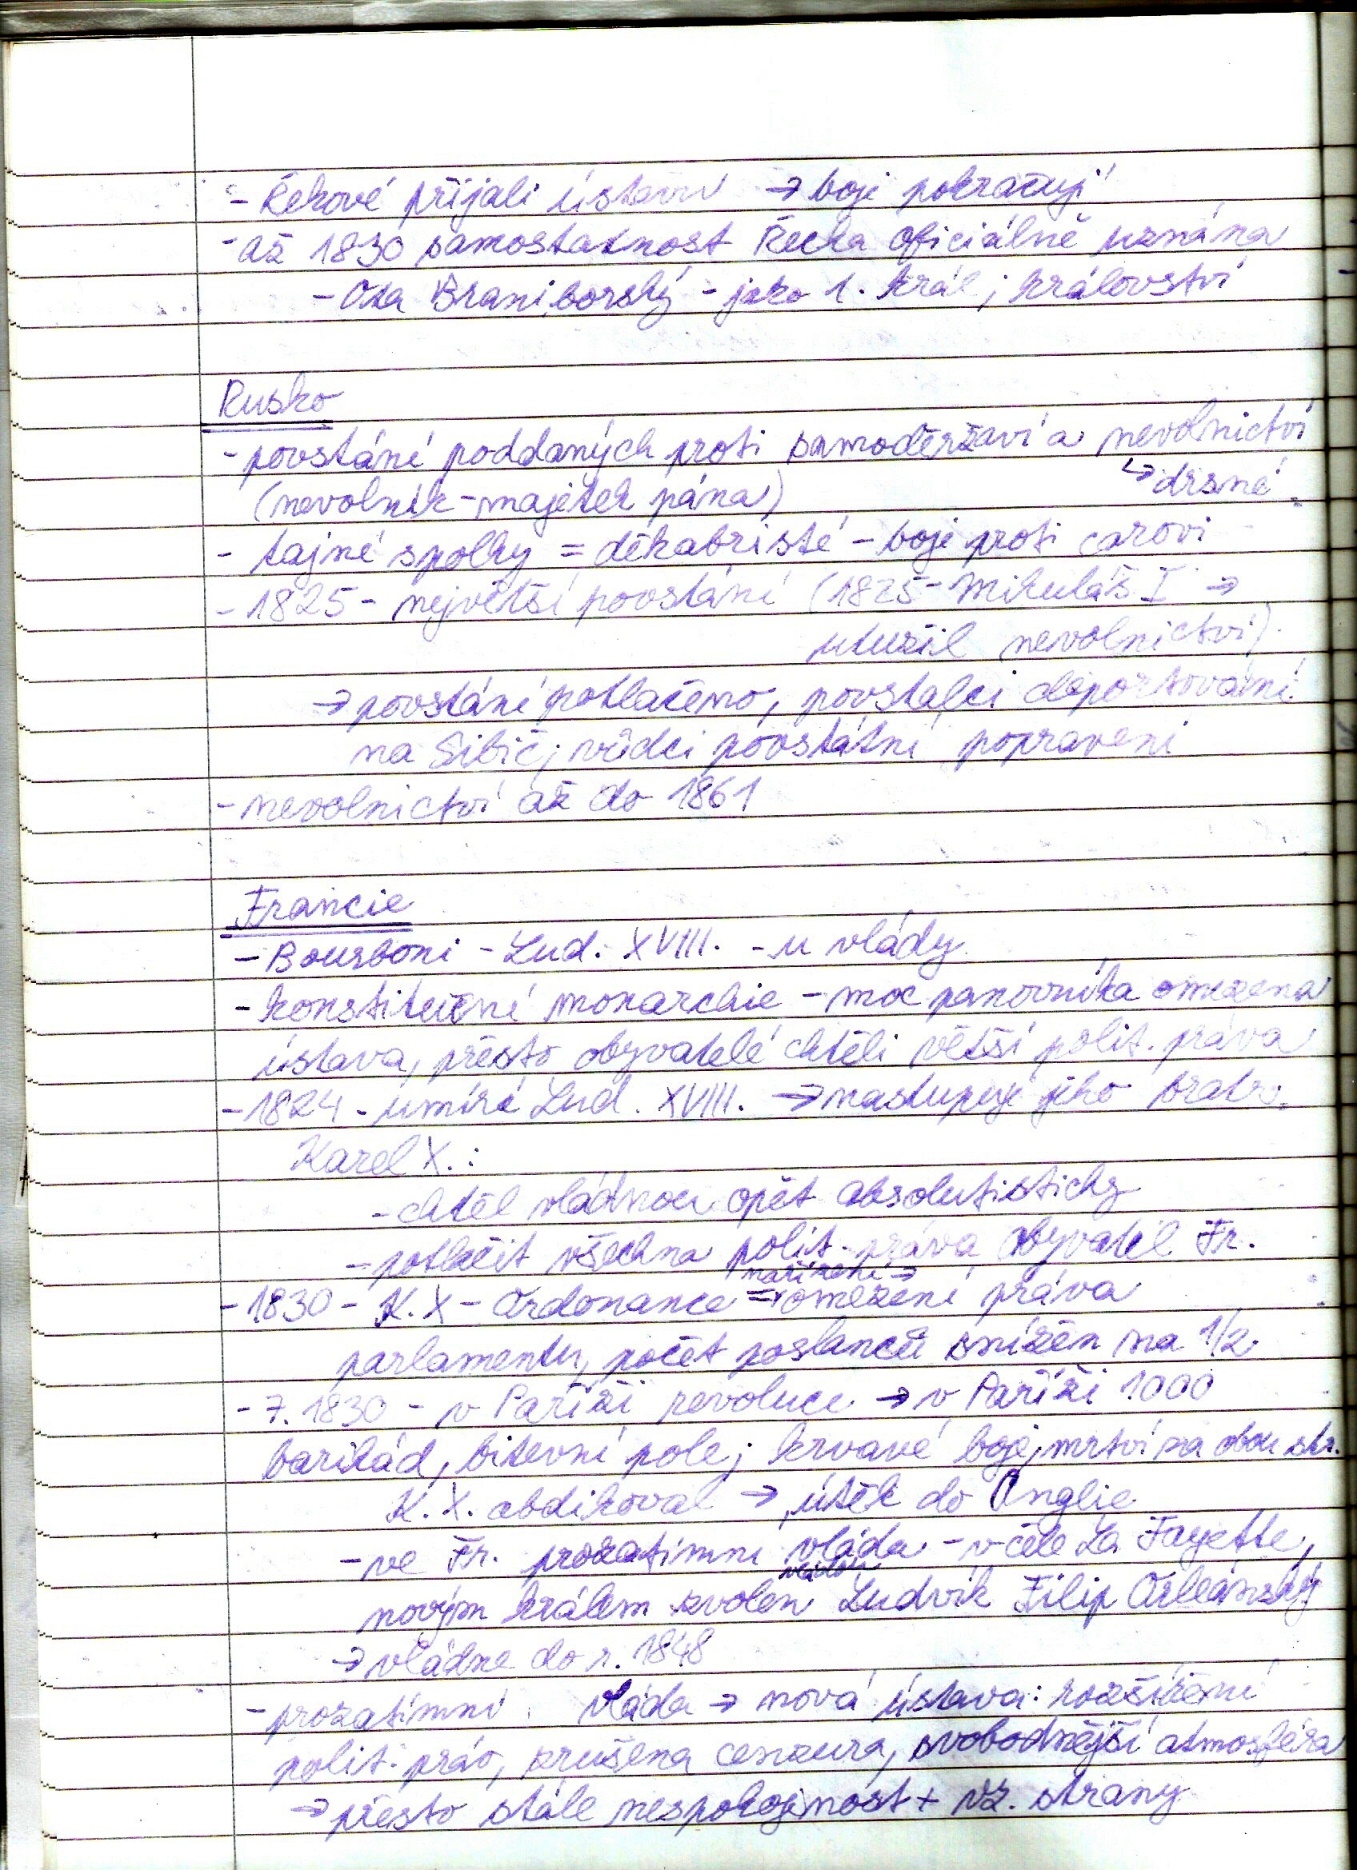 - Řekové přijali ústavu → boje pokračují
- až 1830 samostatnost Řecka oficiálně uznána
- Ota Braniborský - jako 1. král; království
Rusko
- povstání poddaných proti samoděržaví a nevolnictví
(nevolník - majetek pána) ↳ drsné
- tajné spolky = děkabristé - boje proti carovi
- 1825 - největší povstání (1825 - Mikuláš I →
utužil nevolnictví)
→ povstání potlačeno, povstalci deportováni
na Sibiř; vůdci povstátní popraveni
- nevolnictví až do 1861
Francie
- Bourboni - Lud. XVIII. - u vlády
- konstituční monarchie - moc panovníka omezena
ústava, přesto obyvatelé chtěli větší polit. práva
- 1824 - umírá Lud. XVIII. → nastupuje jeho bratr.
Karel X.:
- chtěl vládnou opět absolutisticky
- potlačit všechna polit. práva obyvatel Fr.
nařízení →
- 1830 - K. X - Ordonance = omezení práva
parlamentu, počet poslanců snížen na 1/2.
- 7. 1830 - v Paříži revoluce → v Paříži 1000
barikád, bitevní pole; krvavé boje, mrtví na obou str.
K. X. abdikoval → útěk do Anglie
- ve Fr. prozatimní vláda - v čele La Fayette,
vládou
novým králem zvolen Ludvík Filip Orleánský
→ vládne do r. 1848
- prozatimní vláda → nová ústava: rozšíření
polit. práv, zrušena cenzura, svobodnější atmosféra
→ přesto stále nespokojenost + vz. strany